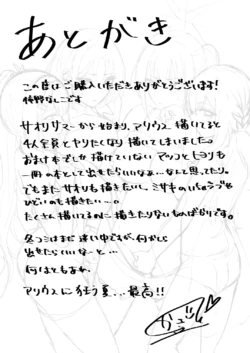 あとがき
この度はご購入いただきありがとうございます!
サオリサマーから始まり、アリウス描いてると
4人全員とヤりたくなり描いてしまいました。
おまけ本でしか描けていないアツコとヒヨリも
一冊の本として出せたらいいなぁ…なんて思ってたり。
でもまたサオリも描きたいし、ミサキのいちゃラブも
ひどいのも描きたい…。
たくさん描いてるのに描きたりないものばかりです。
冬コミはまだ迷い中ですが、何かしら
出せたらいいなーと…
何はともあれ、
アリウスに狂う夏…最高!!